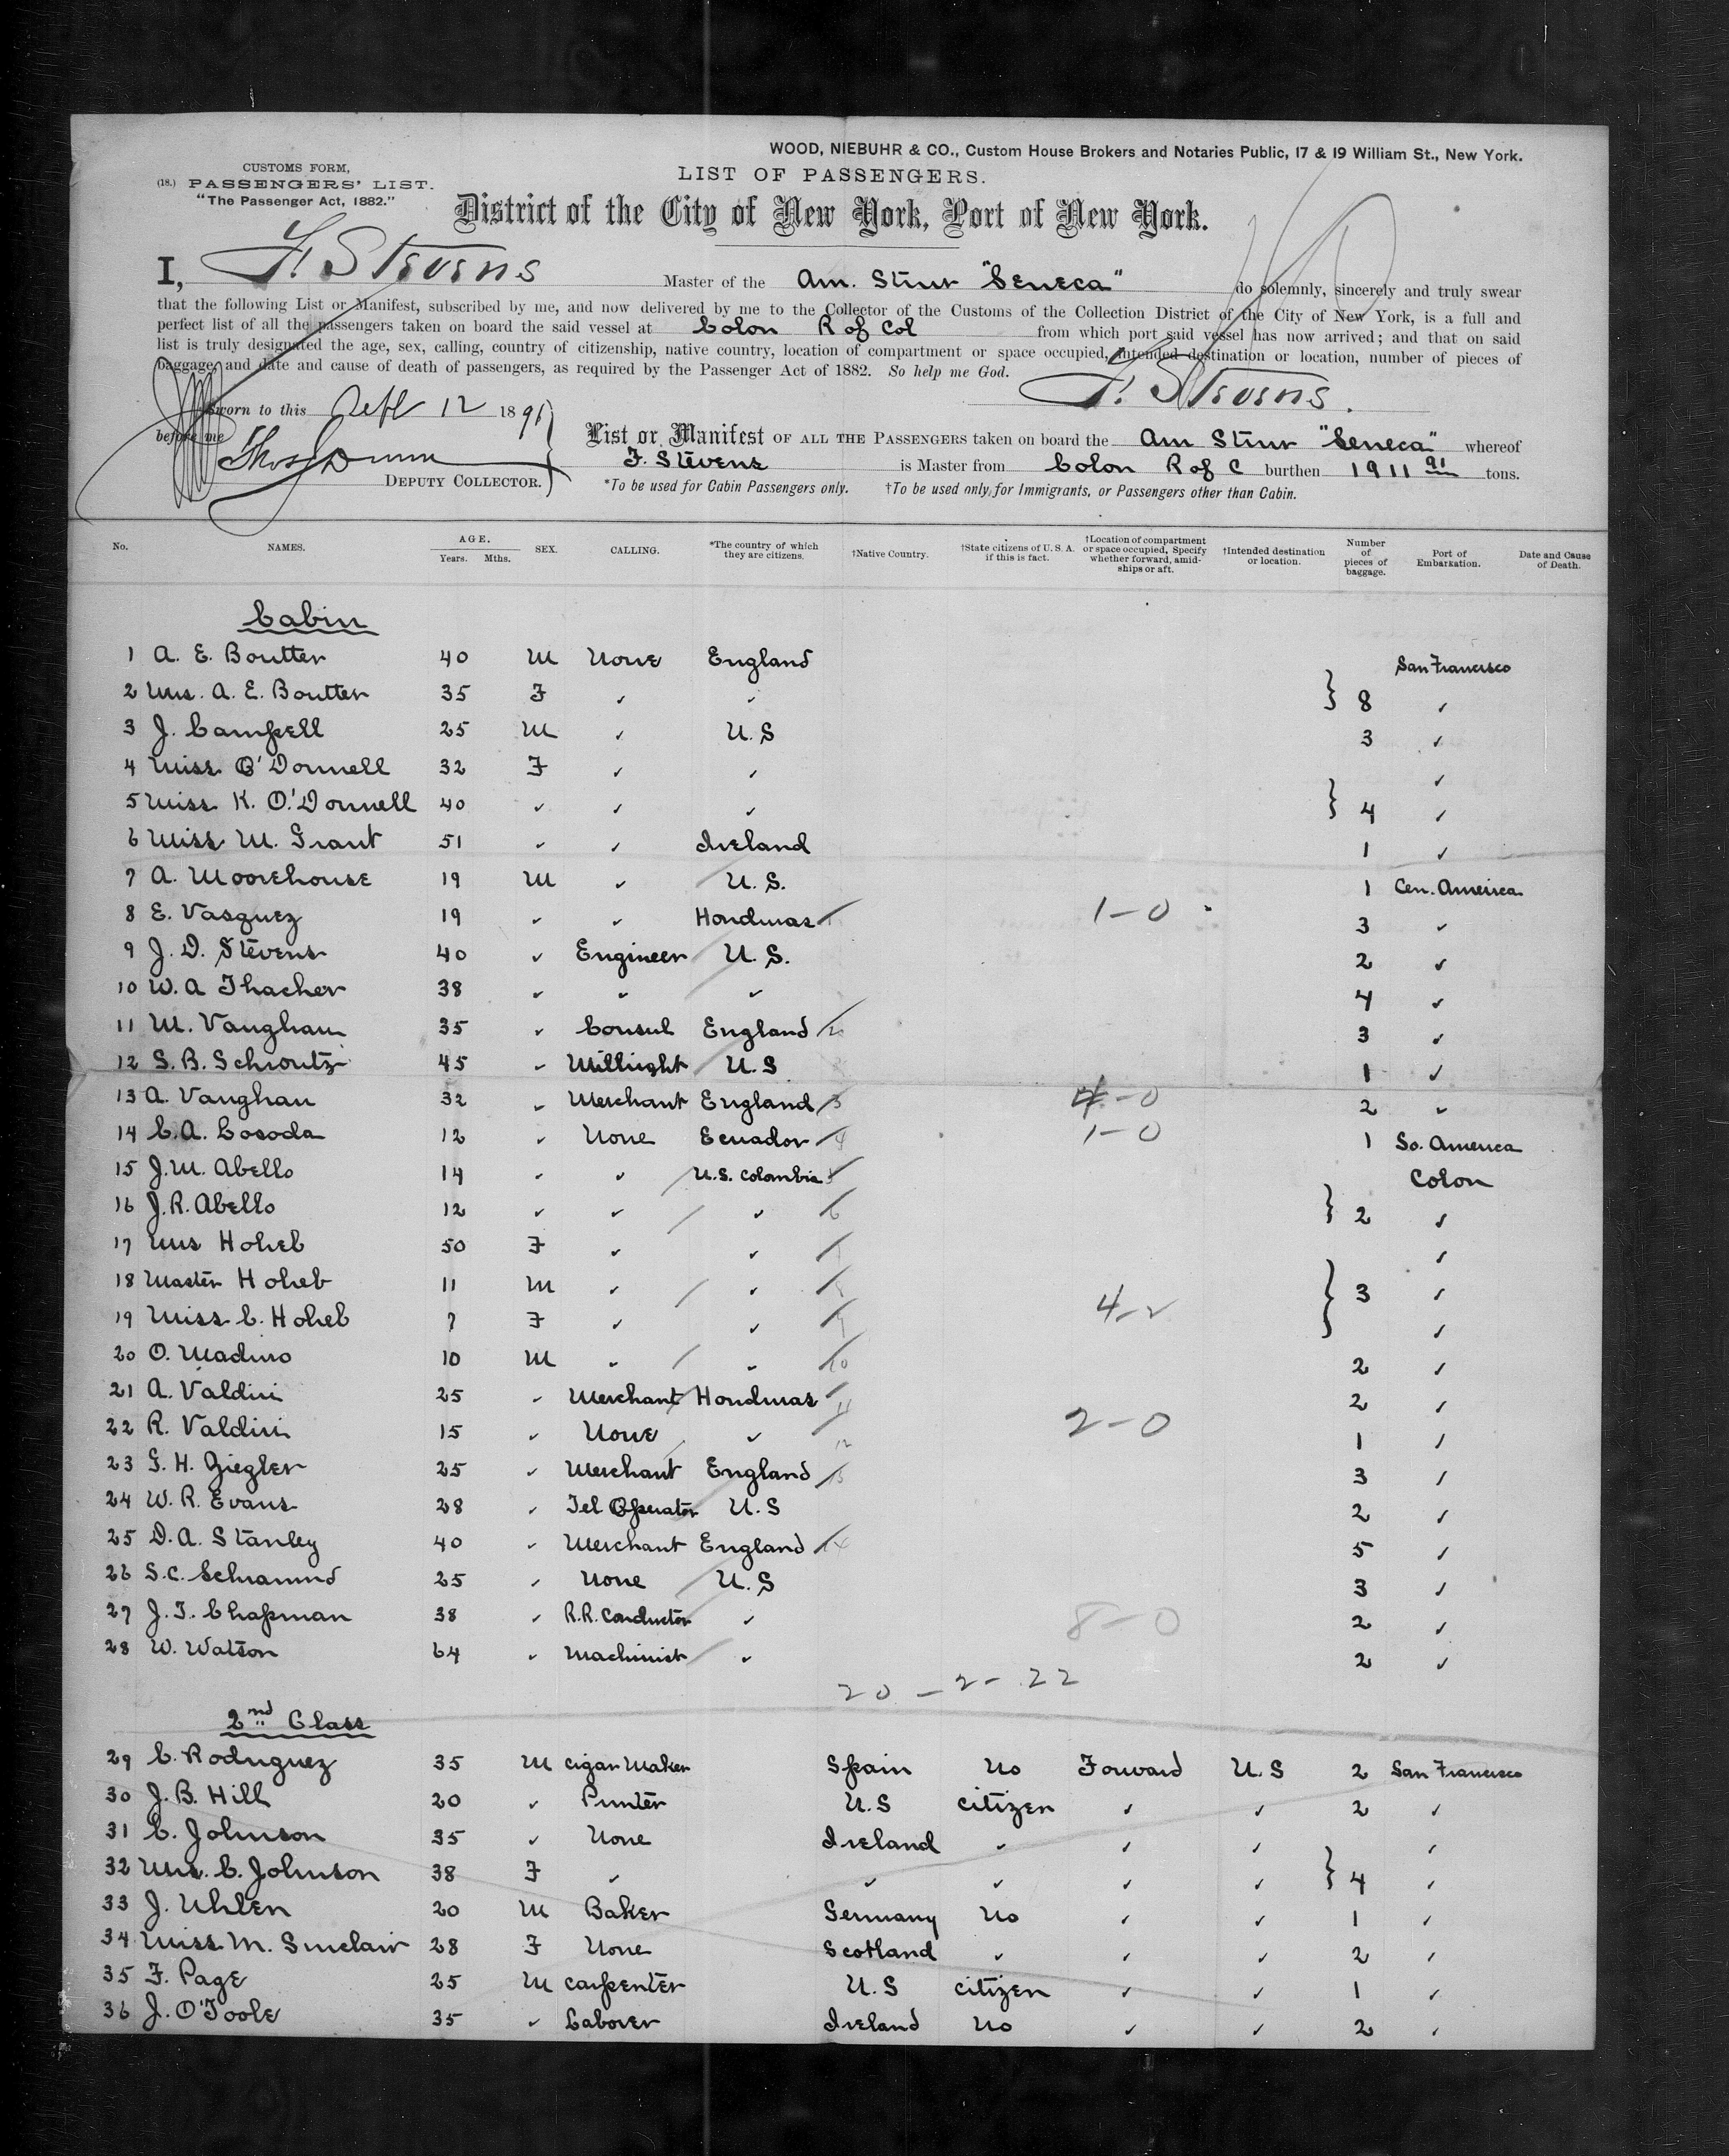 WOOD, NIEBUHR & CO., Custom House Brokers and Notaries Public, 17 & 19 William St., New York.
CUSTOMS FORM,
(18.) PASSENGERS' LIST.
"The Passenger Act, 1882."
LIST OF PASSENGERS.
District of the City of New York, Port of New York.
I, F. Stevens Master of the Am. Stmr "Seneca" do solemnly, sincerely and truly swear
that the following List or Manifest, subscribed by me, and now delivered by me to the Collector of the Customs of the Collection District of the City of New York, is a full and
perfect list of all the passengers taken on board the said vessel at Colon R of Col from which port said vessel has now arrived; and that on said
list is truly designated the age, sex, calling, country of citizenship, native country, location of compartment or space occupied, intended destination or location, number of pieces of
baggage, and date and cause of death of passengers, as required by the Passenger Act of 1882. So help me God.
F. Stevens.
Sworn to this Sept 12 1891
before me
DEPUTY COLLECTOR.
List or Manifest OF ALL THE PASSENGERS taken on board the Am Stmr "Seneca" whereof
F. Stevens is Master from Colon R of C burthen 1911 91 tons.
*To be used for Cabin Passengers only. †To be used only for Immigrants, or Passengers other than Cabin.
No. NAMES. AGE. Years. Mths. SEX. CALLING. *The country of which they are citizens. †Native Country. †State citizens of U.S.A. if this is fact. †Location of compartment or space occupied, Specify whether forward, amidships or aft. †Intended destination or location. Number of pieces of baggage. Port of Embarkation. Date and Cause of Death.
Cabin
1 A. E. Boutter 40 M None England San Francisco
2 Mrs. A. E. Boutter 35 F ✓ ✓ } 8 ✓
3 J. Campell 25 M ✓ U.S 3 ✓
4 Miss O'Donnell 32 F ✓ ✓ ✓
5 Miss K. O'Donnell 40 ✓ ✓ ✓ } 4 ✓
6 Miss M. Grant 51 ✓ ✓ Ireland 1 ✓
7 A. Moorehouse 19 M ✓ U.S. 1 Cen. America
8 E. Vasquez 19 ✓ ✓ Honduras 1-0 3 ✓
9 J. D. Stevens 40 ✓ Engineer U.S. 2 ✓
10 W. A Thacher 38 ✓ ✓ ✓ 4 ✓
11 M. Vaughan 35 ✓ Consul England 2 3 ✓
12 S. B. Schroutz 45 ✓ Millright U.S 1 ✓
13 A. Vaughan 32 ✓ Merchant England 3 -0 2 ✓
14 C. A. Cosoda 12 ✓ None Ecuador 4 1-0 1 So. America
15 J. M. Abello 14 ✓ ✓ U.S. Colombia 5 Colon
16 J. R. Abello 12 ✓ ✓ ✓ 6 } 2 ✓
17 Mrs Hoheb 50 F ✓ ✓ 7 ✓
18 Master Hoheb 11 M ✓ ✓ 8 } 3 ✓
19 Miss C. Hoheb 7 F ✓ ✓ 9 4-2 ✓
20 O. Maduro 10 M ✓ ✓ 10 2 ✓
21 A. Valdivi 25 ✓ Merchant Honduras 11 2 ✓
22 R. Valdivi 15 ✓ None ✓ 12 2-0 1 ✓
23 G. H. Ziegler 25 ✓ Merchant England 13 3 ✓
24 W. R. Evans 28 ✓ Tel Operator U.S 2 ✓
25 D. A. Stanley 40 ✓ Merchant England 14 5 ✓
26 S. C. Schramnd 25 ✓ None U.S 3 ✓
27 J. T. Chapman 38 ✓ R.R. Conductor ✓ 8-0 2 ✓
28 W. Watson 64 ✓ Machinist ✓ 2 ✓
20-2-22
2nd Class
29 C. Rodriguez 35 M Cigar Maker Spain No Forward U.S 2 San Francisco
30 J. B. Hill 20 ✓ Printer U.S citizen ✓ ✓ 2 ✓
31 C. Johnson 35 ✓ None Ireland ✓ ✓ ✓ ✓
32 Mrs. C. Johnson 38 F ✓ ✓ ✓ ✓ ✓ } 4 ✓
33 J. Uhlen 20 M Baker Germany No ✓ ✓ 1 ✓
34 Miss M. Sinclair 28 F None Scotland ✓ ✓ ✓ 2 ✓
35 F. Page 25 M Carpenter U.S citizen ✓ ✓ 1 ✓
36 J. O'Toole 35 ✓ Laborer Ireland No ✓ ✓ 2 ✓